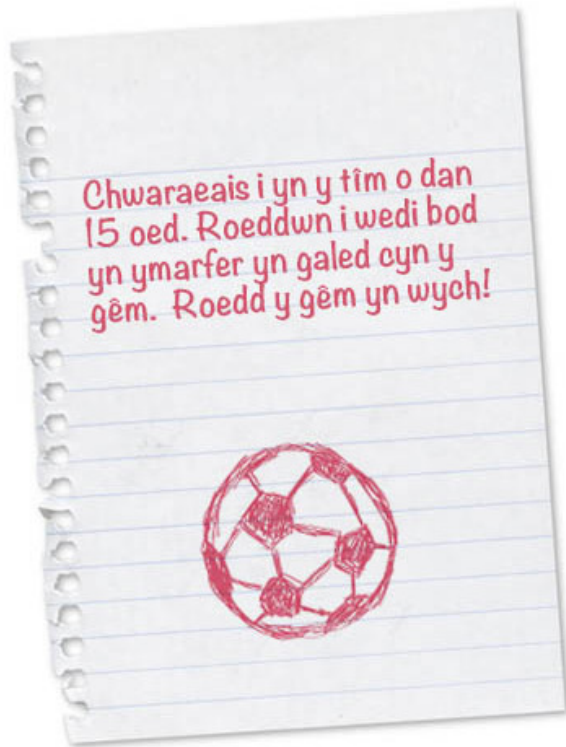 Chwaraeais i yn y tîm o dan
15 oed. Roeddwn i wedi bod
yn ymarfer yn galed cyn y
gêm. Roedd y gêm yn wych!